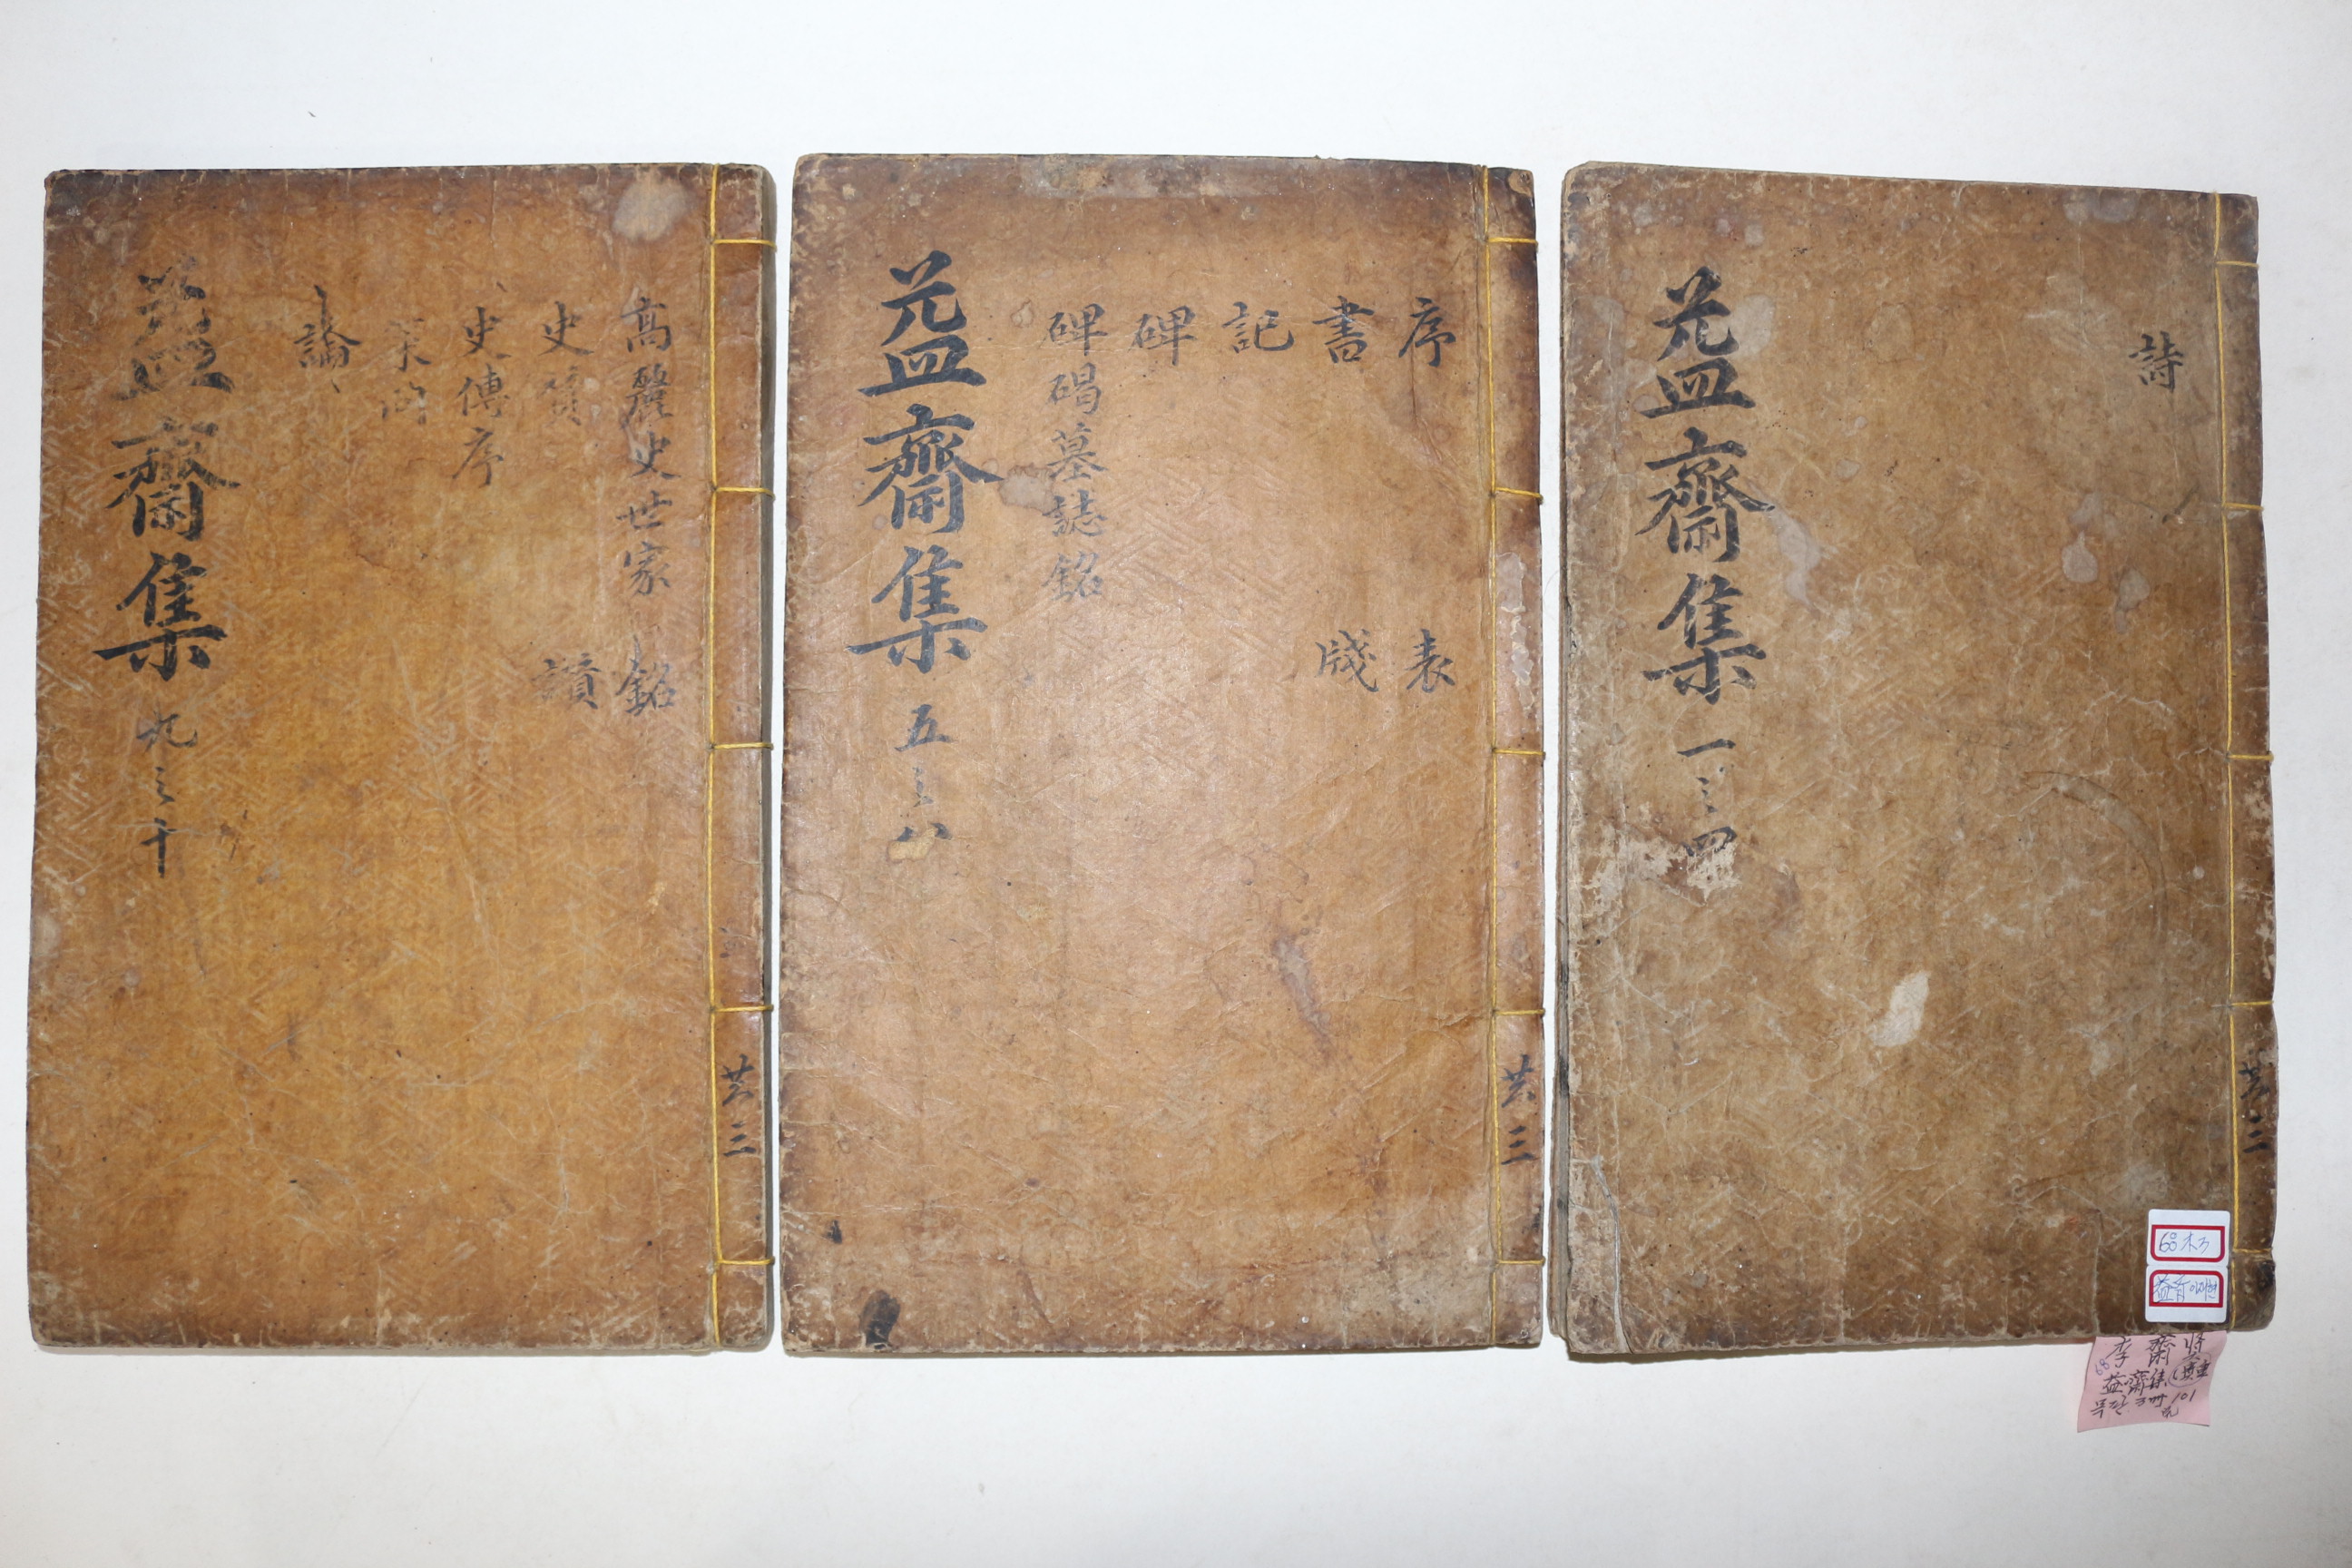 詩
益齋集 一之四
共三
序 表
書 牋
記
碑
碑碣墓誌銘
益齋集 五之八
共三
高麗史世家 銘
史贊 讃
史傳序
策問
論
益齋集 九之十
共三
68
李齊賢
益齋集
3冊
101